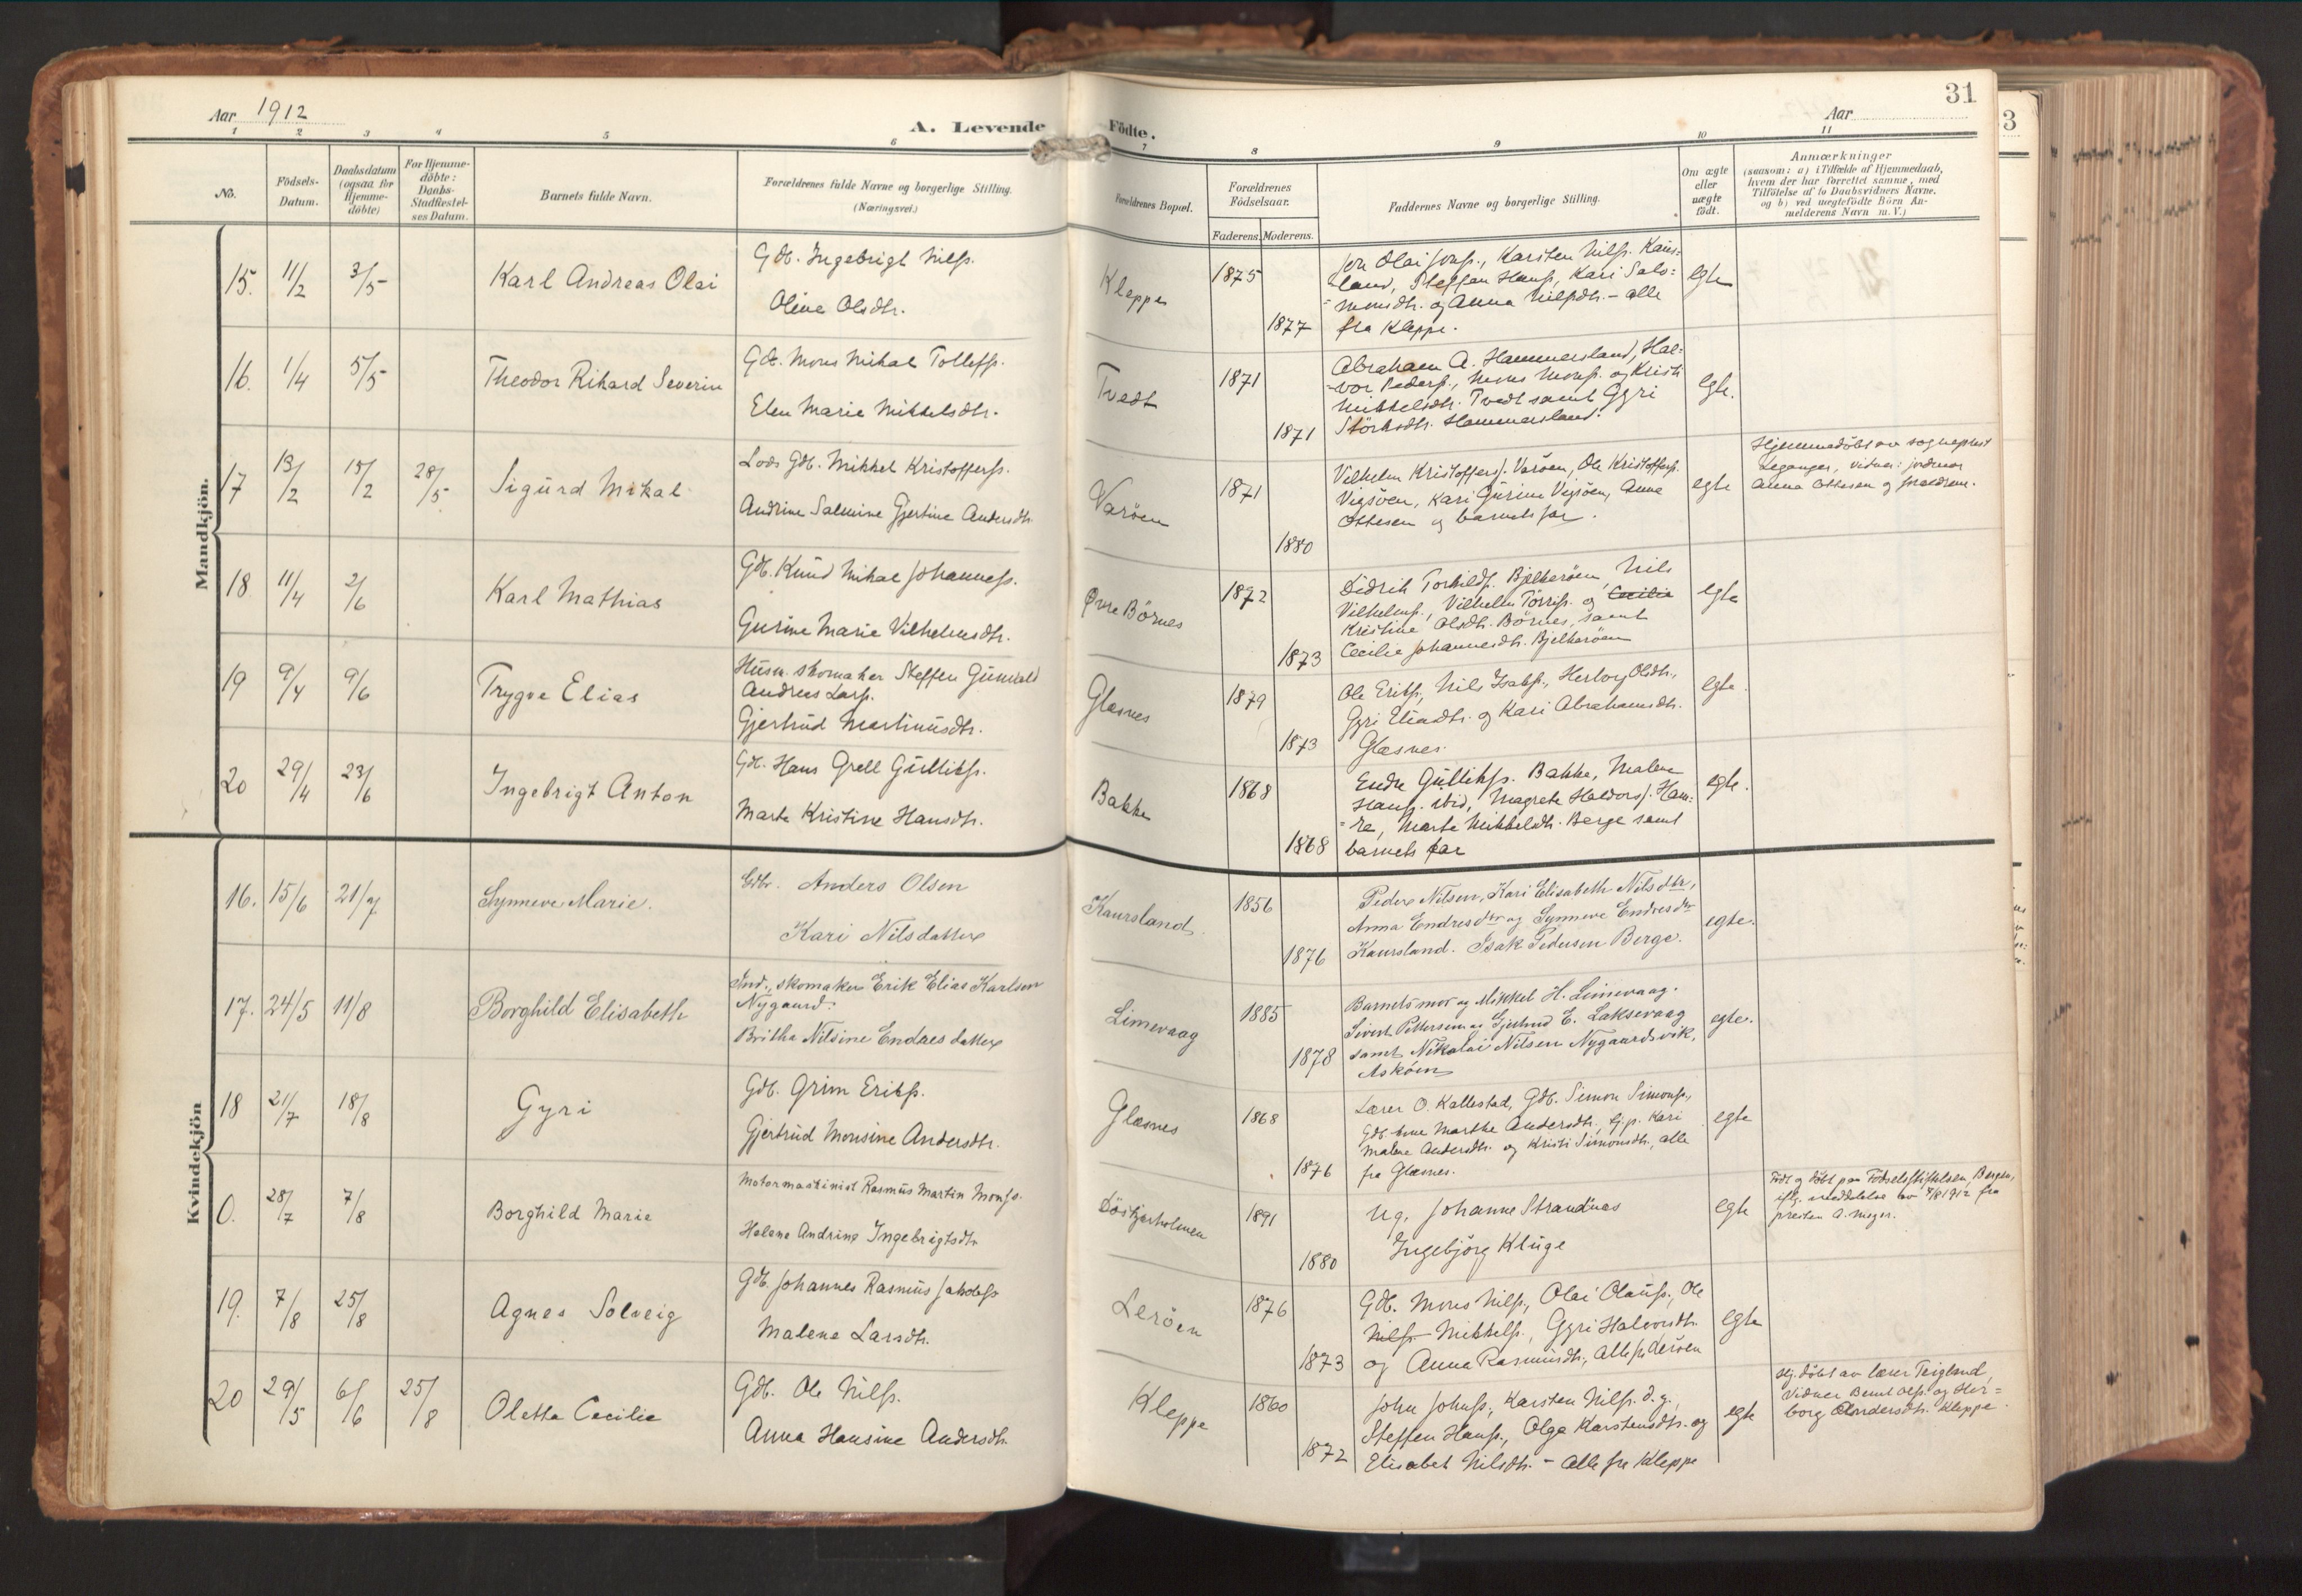 Aar 1912
A. Levende Födte.
Aar
31
3
1 2 3 4 5 6 7 8 9 10 11
No.
Födsels-Datum.
Daabsdatum (ogsaa for Hjemmedöbte)
For Hjemmedöbte: Daabs-Stadfæstelses Datum.
Barnets fulde Navn.
Forældrenes fulde Navne og borgerlige Stilling. (Næringsvei.)
Forældrenes Bopæl.
Forældrenes Födselsaar.
Faderens. Moderens.
Faddernes Navne og borgerlige Stilling.
Om ægte eller uægte födt.
Anmærkninger
(saasom: a) i Tilfælde af Hjemmedaab,
hvem der har forrettet samme, med
Tilföielse af to Daabsvidners Navne,
og b) ved uægtefödte Börn Anmelderens Navn m. V.)
Mandkjön.
15. 11/2 3/5 Karl Andreas Olai
Gdb. Ingebrigt Nilss.
Oline Olsdtr.
Kleppe 1875 1877
Jon Olai Jonss., Karsten Nilss. Kaurs-
land, Steffen Hanss., Kari Salo-
monsdtr. og Anna Nilsdtr. - alle
fra Kleppe.
egte
16. 1/4 5/5 Theodor Rikard Severin
Gdb. Mons Mikal Tollefss.
Elen Marie Mikkelsdtr.
Tvedt 1871 1871
Abraham A. Hammersland, Hal-
vor Pederss., Mons Monss. og Kristi
Mikkelsdtr. Tvedt samt Gyri
Störksdtr. Hammersland.
egte.
17 13/2 15/2 28/5 Sigurd Mikal
Lods Gdb. Mikkel Kristofferss.
Andrine Salmine Gjertine Andersdtr.
Varöen 1871 1880
Vilhelm Kristofferss. Varöen, Ole Kristofferss.
Vigsöen, Kari Gurine Vigsöen, Anna
Ottesen og barnets far.
egte
Hjemmedöbt av sogneprest
Leganger, vidner: jordmor
Anna Ottesen og forældrene.
18 11/4 2/6 Karl Mathias
Gdb. Knud Mikal Johanness.
Gurine Marie Vilhelmsdtr.
Øvre Börnes 1872 1873
Didrik Torkilds. Bjelkeröen, Nils
Vilhelmss., Vilhelm Törriss. og Cecilie
Kristine Olsdtr. Börnes, samt
Cecilie Johannesdtr. Bjelkeröen
egte
19 9/4 9/6 Trygve Elias
Husm. skomaker Steffen Gunvald
Andreas Larss.
Gjertrud Martinusdtr.
Glesnes 1879 1873
Ole Erikss., Nils Isakss., Herborg Olsdtr.,
Gyri Eliasdtr. og Kari Abrahamsdtr.
Glesnes.
egte.
20 29/4 23/6 Ingebrigt Anton
Gdb. Hans Grell Gullikss.
Marte Kristine Hansdtr.
Bakke 1868 1868
Endre Gullikss. Bakke, Malene
Hans. ibid, Magrete Haldors. Ham-
re, Marte Mikkelsdtr. Berge samt
barnets far
egte.
Kvindekjön
16. 15/6 21/7 Synneve Marie.
Gdbr. Anders Olsen
Kari Nilsdatter
Kaursland. 1856 1876
Peder Nilsen, Kari Elisabeth Nilsdtr,
Anna Endresdtr og Synneve Endresdtr
Kaursland. Isak Pedersen Berge.
egte.
17. 24/5 11/8 Borghild Elisabeth
Ind., skomaker Erik Elias Karlsen
Nygaard.
Britha Nilsine Endresdatter
Limevaag 1885 1878
Barnets mor og Mikkel H. Limevaag.
Sivert Pettersen og Gjertrud E. Laksevaag
samt Nikolai Nilsen Nygaardsvik,
Asköen
egte.
18 21/7 18/8 Gyri
Gdb. Grim Erikss.
Gjertrud Monsine Andersdtr.
Glesnes 1868 1876
Lærer O. Kallestad, Gdb. Simon Simonss.,
Gdb. Marthe Andersdtr., Kari
Malene Andersdtr. og Kristi Simonsdtr., alle
fra Glesnes.
egte
0. 28/7 7/8 Borghild Marie
Motormaskinist Rasmus Martin Monss.
Helene Andrine Ingebrigtsdtr
Döskjerholmen 1891 1880
Ug. Johanne Strandnæs
Ingebjörg Kluge
egte
Födt og döbt paa Födselsstiftelsen, Bergen,
iflg. meddelelse av 7/8 1912 fra
presten A. Meyer.
19. 7/8 25/8 Agnes Solveig
Gdb. Johannes Rasmus Jakobss
Malene Larsdtr.
Leröen 1876 1873
Gdb. Mons Nilss., Olai Olauss., Ole
Nilss. Mikkelss., Gyri Halvorsdtr.
og Anna Rasmusdtr., alle fr Leröen
egte
20 29/5 6/6 25/8 Oletta Cecilie
Gdb. Ole Nilss.
Anna Hansine Andersdtr.
Kleppe 1860 1872
John Johnss., Karsten Nilss. d. y.,
Steffen Hanss., Olga Karstensdtr. og
Elisabet Nilsdtr. - alle fra Kleppe
egte
Hj. döbt av lærer Teigland,
Vidner Bernt Olss. og Her-
borg Andersdtr. Kleppe.